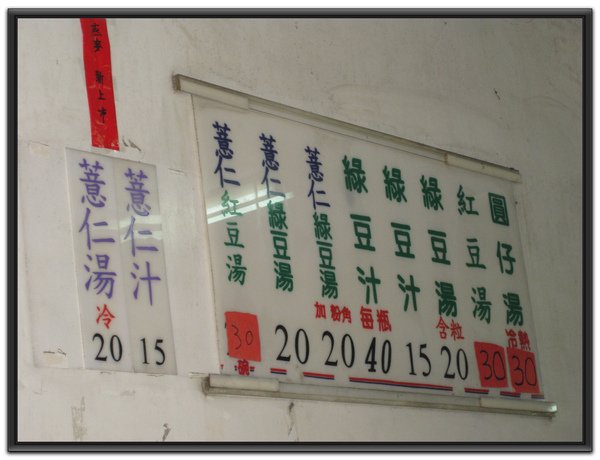 圓仔湯
冷熱
30
紅豆湯
30
綠豆湯
含粒
20
綠豆汁
15
綠豆汁
每瓶
40
薏仁綠豆湯
加粉角
20
薏仁綠豆湯
20
薏仁紅豆湯
30
碗
燕麥 新上市
薏仁汁
15
薏仁湯
冷
20